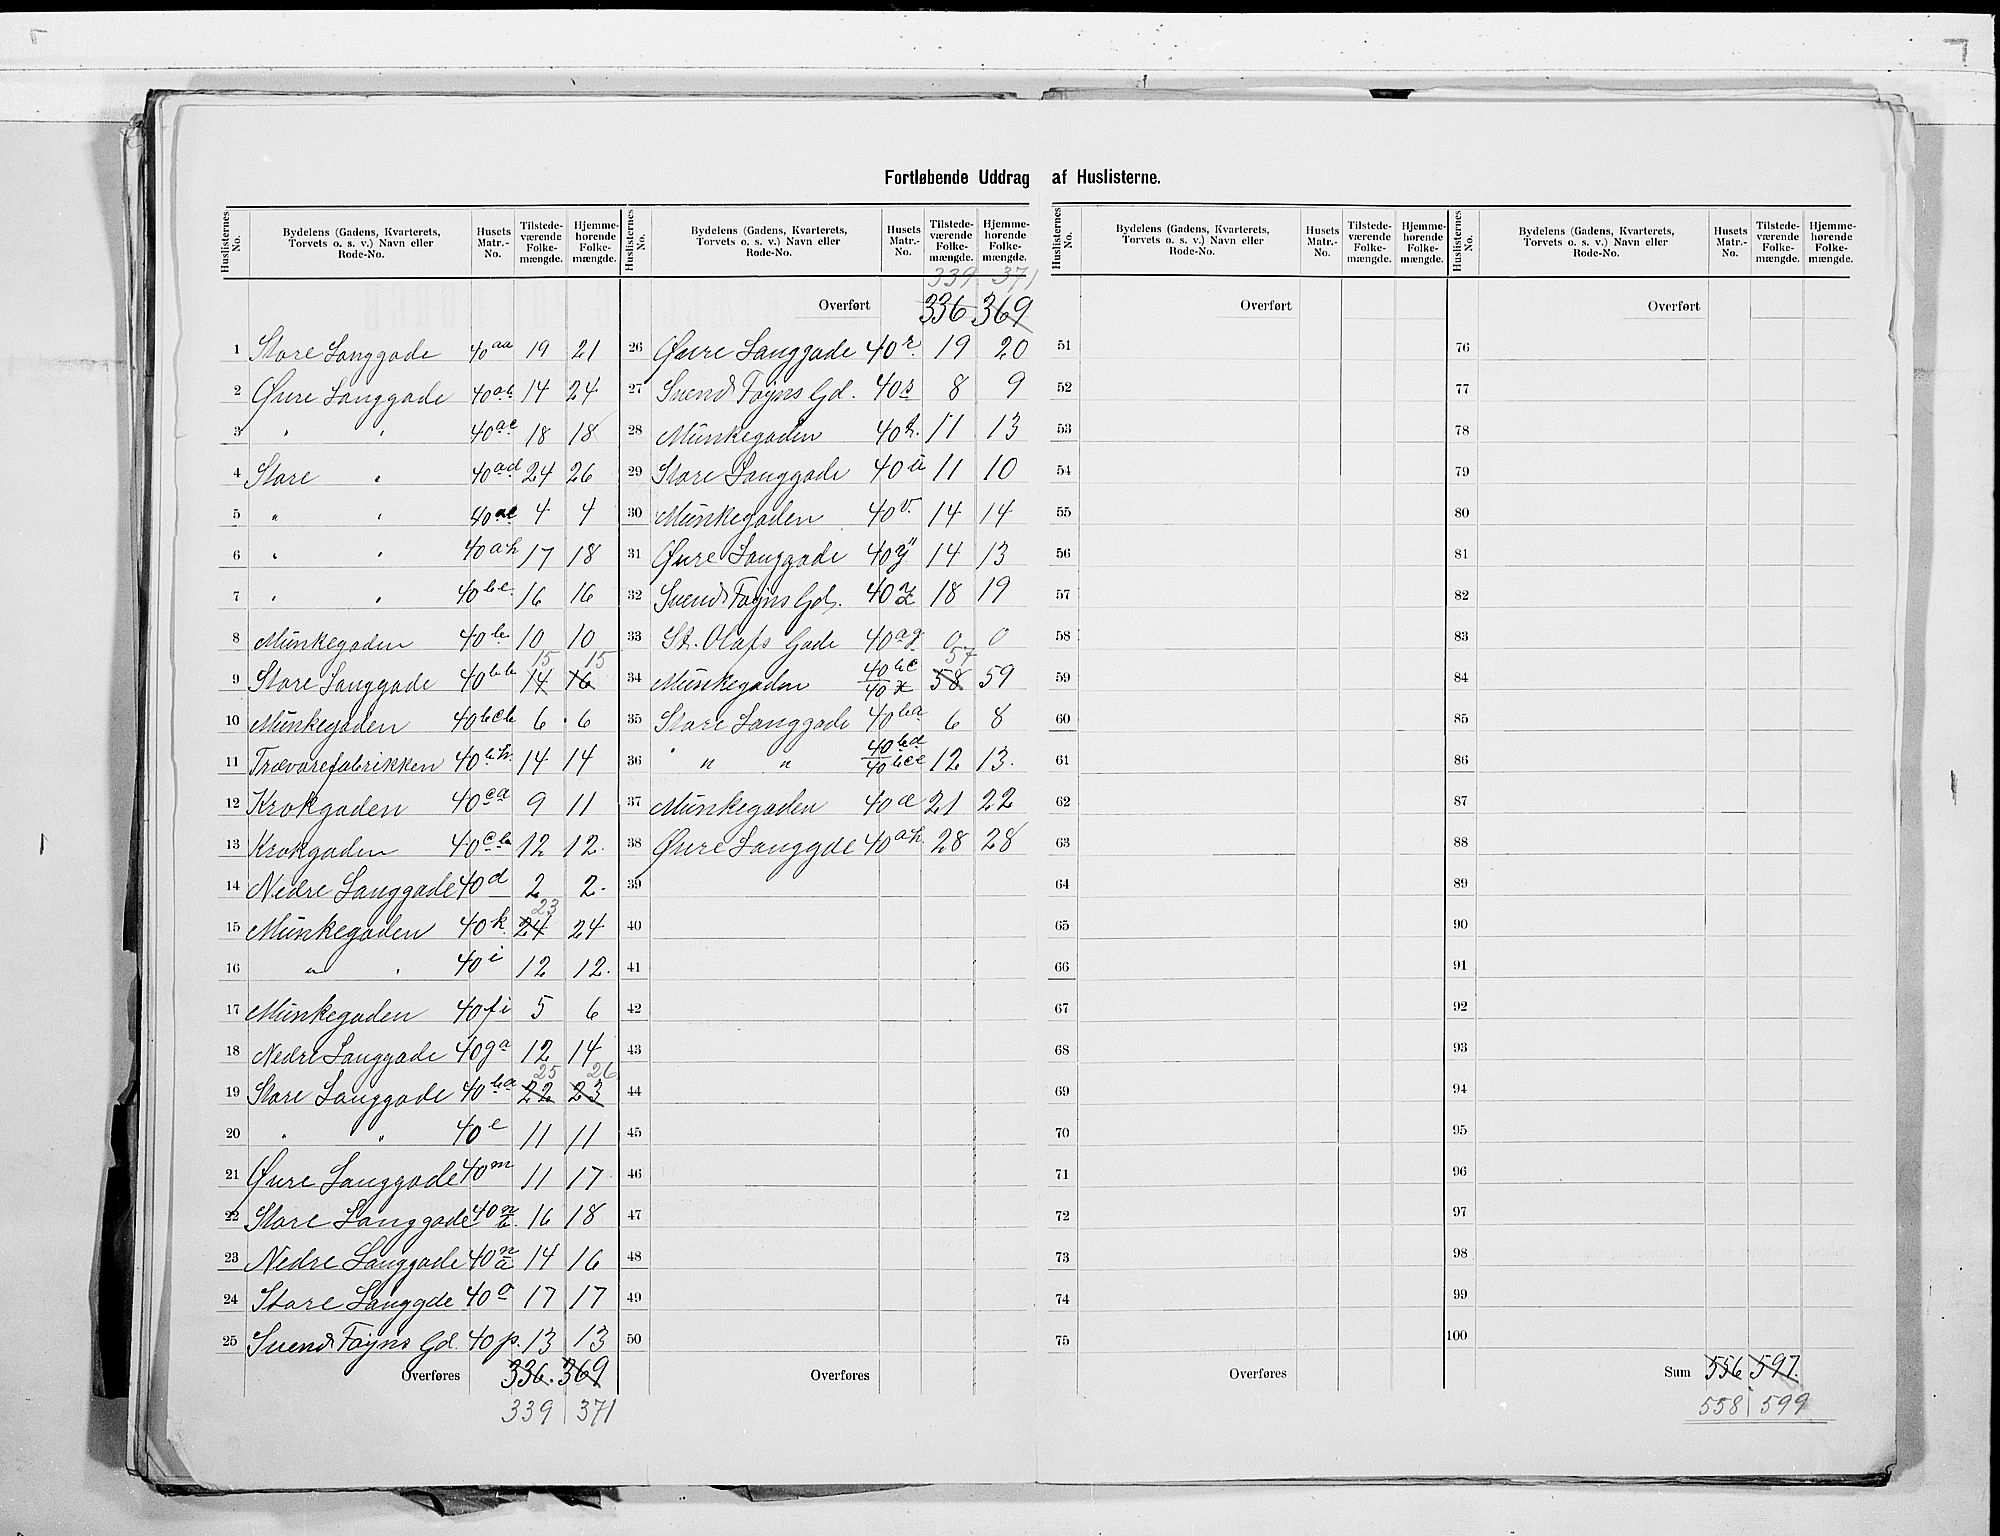 Fortløbende Uddrag af Huslisterne.
Huslisternes No. | Bydelens (Gadens, Kvarterets, Torvets o. s. v.) Navn eller Rode-No. | Husets Matr.-No. | Tilstedeværende Folkemængde. | Hjemmehørende Folkemængde.
1 Store Langgade 40aa 19 21
2 Øvre Langgade 40ab 14 24
3 " " 40ac 18 18
4 Store " 40ad 24 26
5 " " 40ae 4 4
6 " " 40ah 17 18
7 " " 40be 16 16
8 Munkegaden 40b 10 10
15 15
9 Store Langgade 40bb 14 16
10 Munkegaden 40bcb 6 6
11 Trævarefabrikken 40bh 14 14
12 Krokgaden 40ca 9 11
13 Krokgaden 40cb 12 12.
14 Nedre Langgade 40d 2 2.
23
15 Munkegaden 40k 24 24
16 " " 40i 12 12.
17 Munkegaden 40fi 5 6
18 Nedre Langgade 40ga 12 14
25 26
19 Store Langgade 40ha 22 23
20 " " 40e 11 11
21 Øvre Langgade 40m 11 17
22 Store Langgade 40n/b. 16 18
23 Nedre Langgade 40n/a 14 16
24 Store Langgde 40o 17 17
25 Svend Foyns Gd. 40p. 13 13
Overføres 336. 369
339 371
Huslisternes No. | Bydelens (Gadens, Kvarterets, Torvets o. s. v.) Navn eller Rode-No. | Husets Matr.-No. | Tilstedeværende Folkemængde. | Hjemmehørende Folkemængde.
339 371
Overført 336 369
26 Øvre Langgade 40r. 19 20
27 Svend Foyns Gd. 40s 8 9
28 Munkegaden 40t. 11 13
29 Store Langgade 40u 11 10
30 Munkegaden 40v. 14 14
31 Øvre Langgade 40y 14 13
32 Svend Foyns Gd. 40z 18 19
33 St. Olafs Gade 40ag 0 0
57
34 Munkegaden 40bc/40x 58 59
35 Store Langgade 40ba 6 8
36 " " 40bd/40bcc 12 13.
37 Munkegaden 40a 21 22
38 Øvre Langgde 40ah. 28 28
39
40
41
42
43
44
45
46
47
48
49
50
Overføres
Huslisternes No. | Bydelens (Gadens, Kvarterets, Torvets o. s. v.) Navn eller Rode-No. | Husets Matr.-No. | Tilstedeværende Folkemængde. | Hjemmehørende Folkemængde.
Overført
51
52
53
54
55
56
57
58
59
60
61
62
63
64
65
66
67
68
69
70
71
72
73
74
75
Overføres
Huslisternes No. | Bydelens (Gadens, Kvarterets, Torvets o. s. v.) Navn eller Rode-No. | Husets Matr.-No. | Tilstedeværende Folkemængde. | Hjemmehørende Folkemængde.
Overført
76
77
78
79
80
81
82
83
84
85
86
87
88
89
90
91
92
93
94
95
96
97
98
99
100
Sum 556 597.
558 599